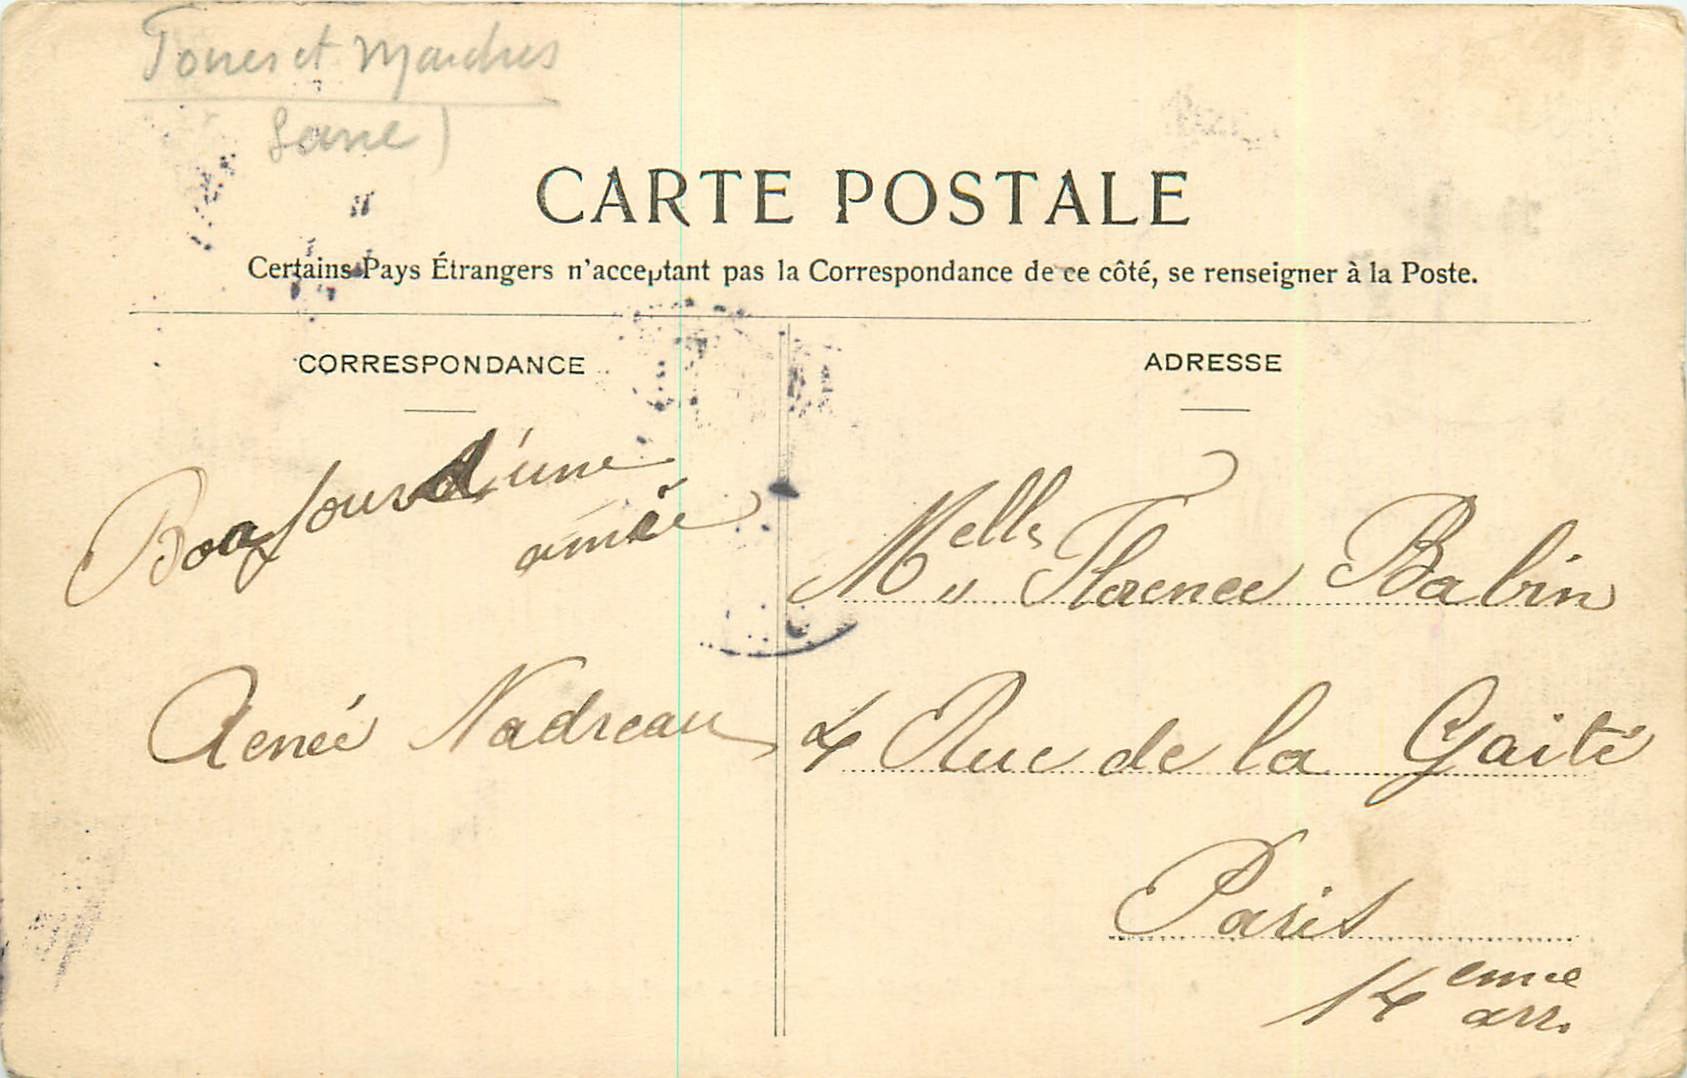 et
CARTE POSTALE
Certains Pays Étrangers n'acceptant pas la Correspondance de ce côté, se renseigner à la Poste.
CORRESPONDANCE
Bonjour d'une
amie
Renée Nadreau
ADRESSE
Melle Florence Babin
4 Rue de la Gaité
Paris
14 eme
arr.